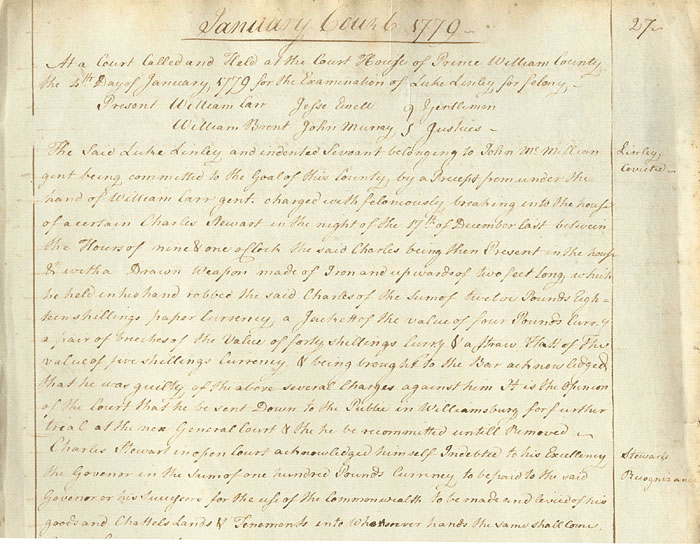 January Court 1779
27
At a Court Called and Held at the Court House of Prince William County
the 4th Day of January, 1779 for the Examination of Luke Linley for felony,
Present William Carr Jesse Ewell } Gentlemen
William Brent John Murray } Justices
The Said Luke Linley and indented Servant belonging to John Mc. Millian
Linley
Convictn
gent being committed to the Goal of this County, by a Precept from under the
hand of William Carr gent. charged with feloniously breaking into the house
of a certain Charles Stewart in the night of the 17th of December last between
the Hours of nine & one oClock the said Charles being then Present in the house
& with a Drawn Weapon made of Iron and upwards of two feet long, which
he held in his hand robbed the said Charles of the Sum of twelve Pounds Eigh=
teen shillings paper Currency, a Jackett of the value of four Pounds Curr.y
a pair of breeches of the Value of forty shillings Curry & a straw Hatt of the
value of five shillings Currency & being brought to the Bar acknowledged
that he was guilty of the above several Charges against him It is the Opinion
of the Court that he be sent Down to the Public in Williamsburg for further
trial at the nex General Court & the he be recommitted untill Removed
Charles Stewart in open Court acknowledged himself Indebted to his Excellency
Stewarts
the Govenor in the Sum of one hundred Pounds Currency to be paid to the said
Recognizance
Govenor or his Successors for the use of the Commonwealth to be made and levied of his
goods and Chattels Lands & Tenements into Whosoever hands the same shall come